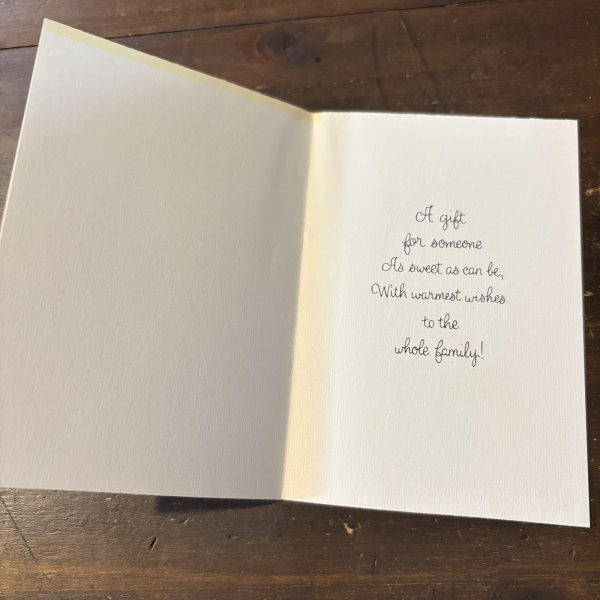 A gift
for someone
As sweet as can be,
With warmest wishes
to the
whole family!